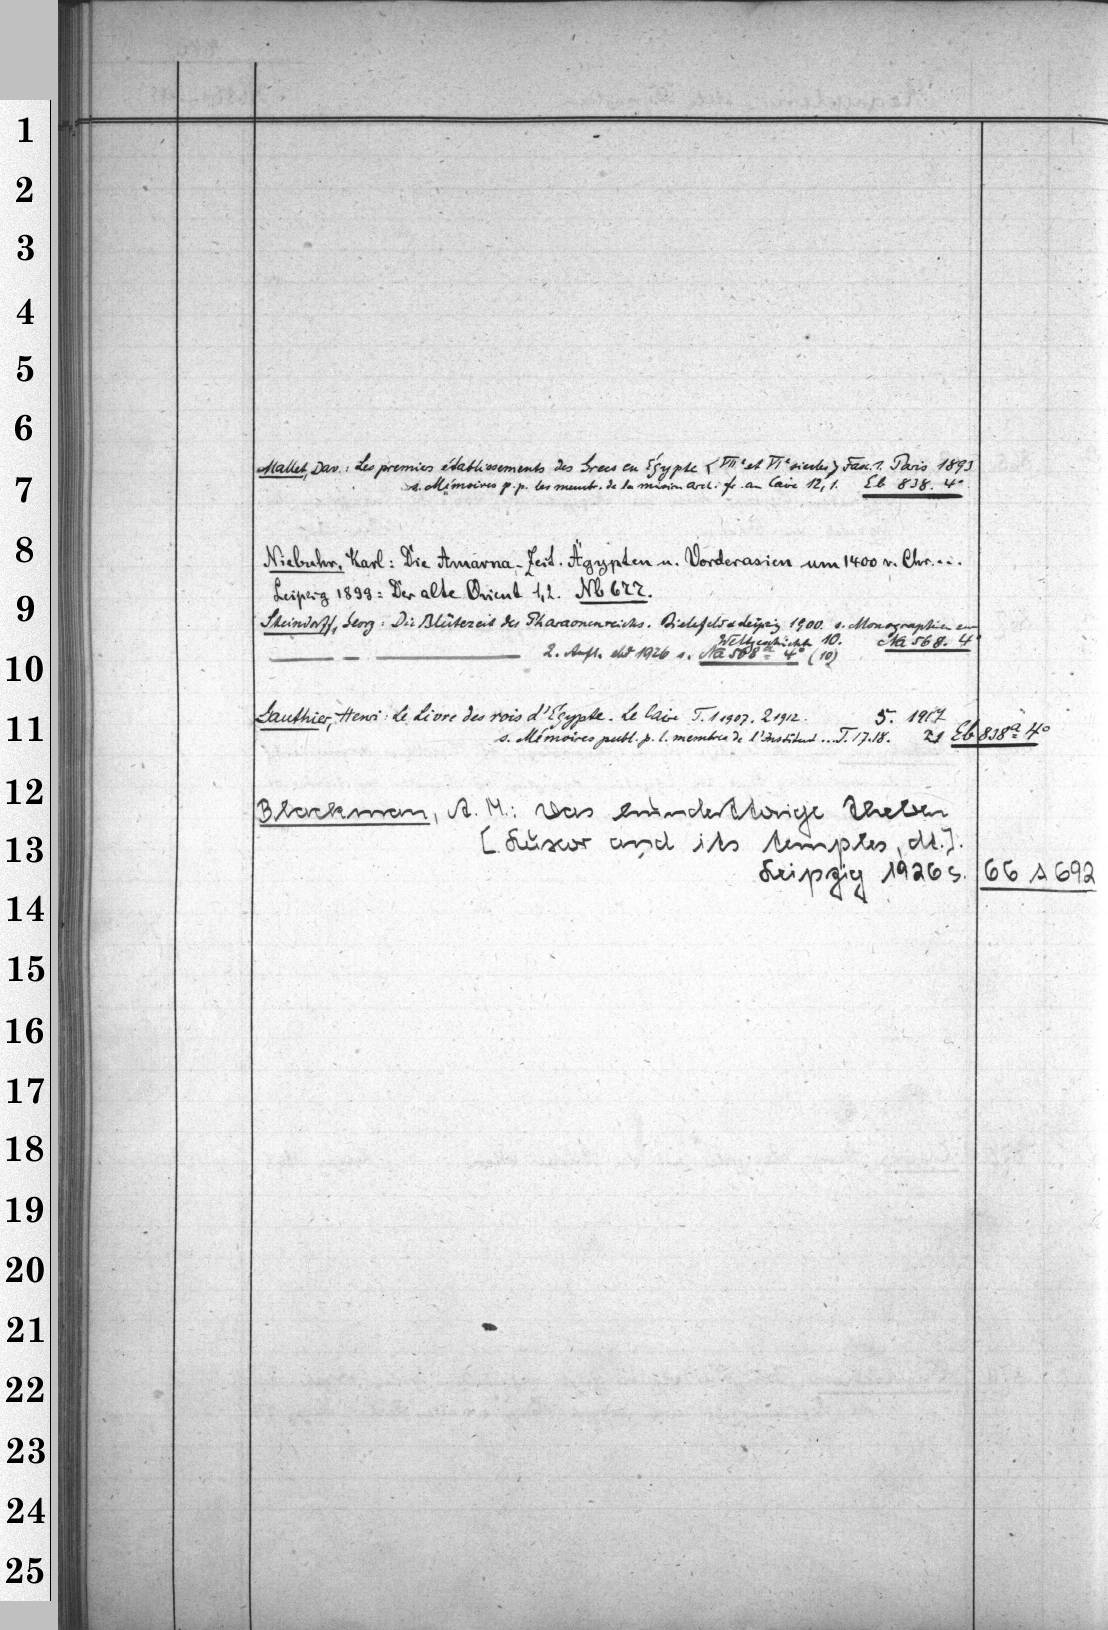 1
2
3
4
5
6
Mallet, Dav.: Les premiers établissements des Grecs en Égypte (VIIe et VIe siecles) Fasc. 1. Paris 1893
7
s. Mémoires p. p. les membr. de la mission arch. fr. au Caire 12,1. Eb 838. 4°
8
Niebuhr, Karl: Die Amarna-Zeit. Ägypten u. Vorderasien um 1400 v. Chr....
Leipzig 1899 = Der alte Orient 1,2. Nb 677.
9
Steindorff, Georg: Die Blütezeit des Pharaonenreichs. Bielefeld u. Leipzig 1900. s. Monographien zur
Weltgeschichte 10. Na 568. 4°
10
2. Aufl. 1926 s. Na 568a 4° (10)
Gauthier, Henri: Le Livre des rois d'Égypte. Le Caire T. 1 1907. 2 1912. 5. 1917
11
s. Mémoires publ. p. l. membres de l'Institut... T. 17.18. 21 Eb 838a 4°
12
Blackman, A. M.: Das hunderttorige Theben
13
[Luxor and its temples, dt.].
Leipzig 1926 s. 66 A 692
14
15
16
17
18
19
20
21
22
23
24
25